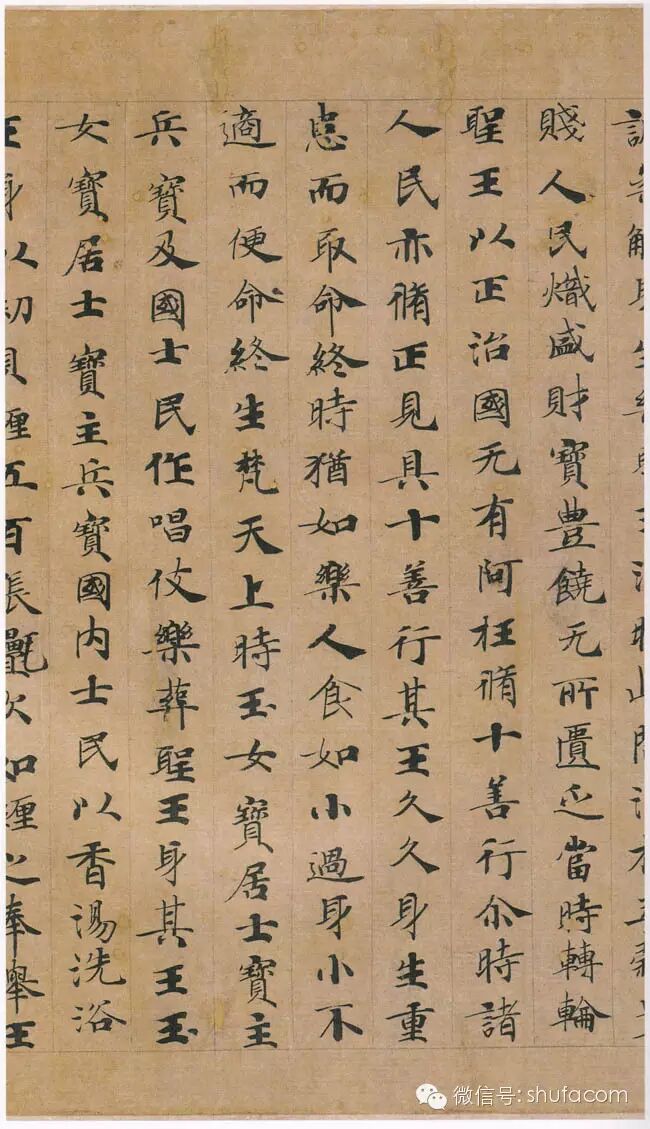 賤人民熾盛財寶豊饒无所匱乏當時轉輪
聖王以正治國无有阿枉脩十善行尒時諸
人民亦脩正見具十善行其王久久身生重
患而取命終時猶如樂人食如小過身小不
適而便命終生梵天上時玉女寶居士寶主
兵寶及國士民作唱伎樂葬聖王身其王玉
女寶居士寶主兵寶國内士民以香湯洗浴
王身以劫貝纏五百張氎次如纏之奉舉王
微信号: shufacom